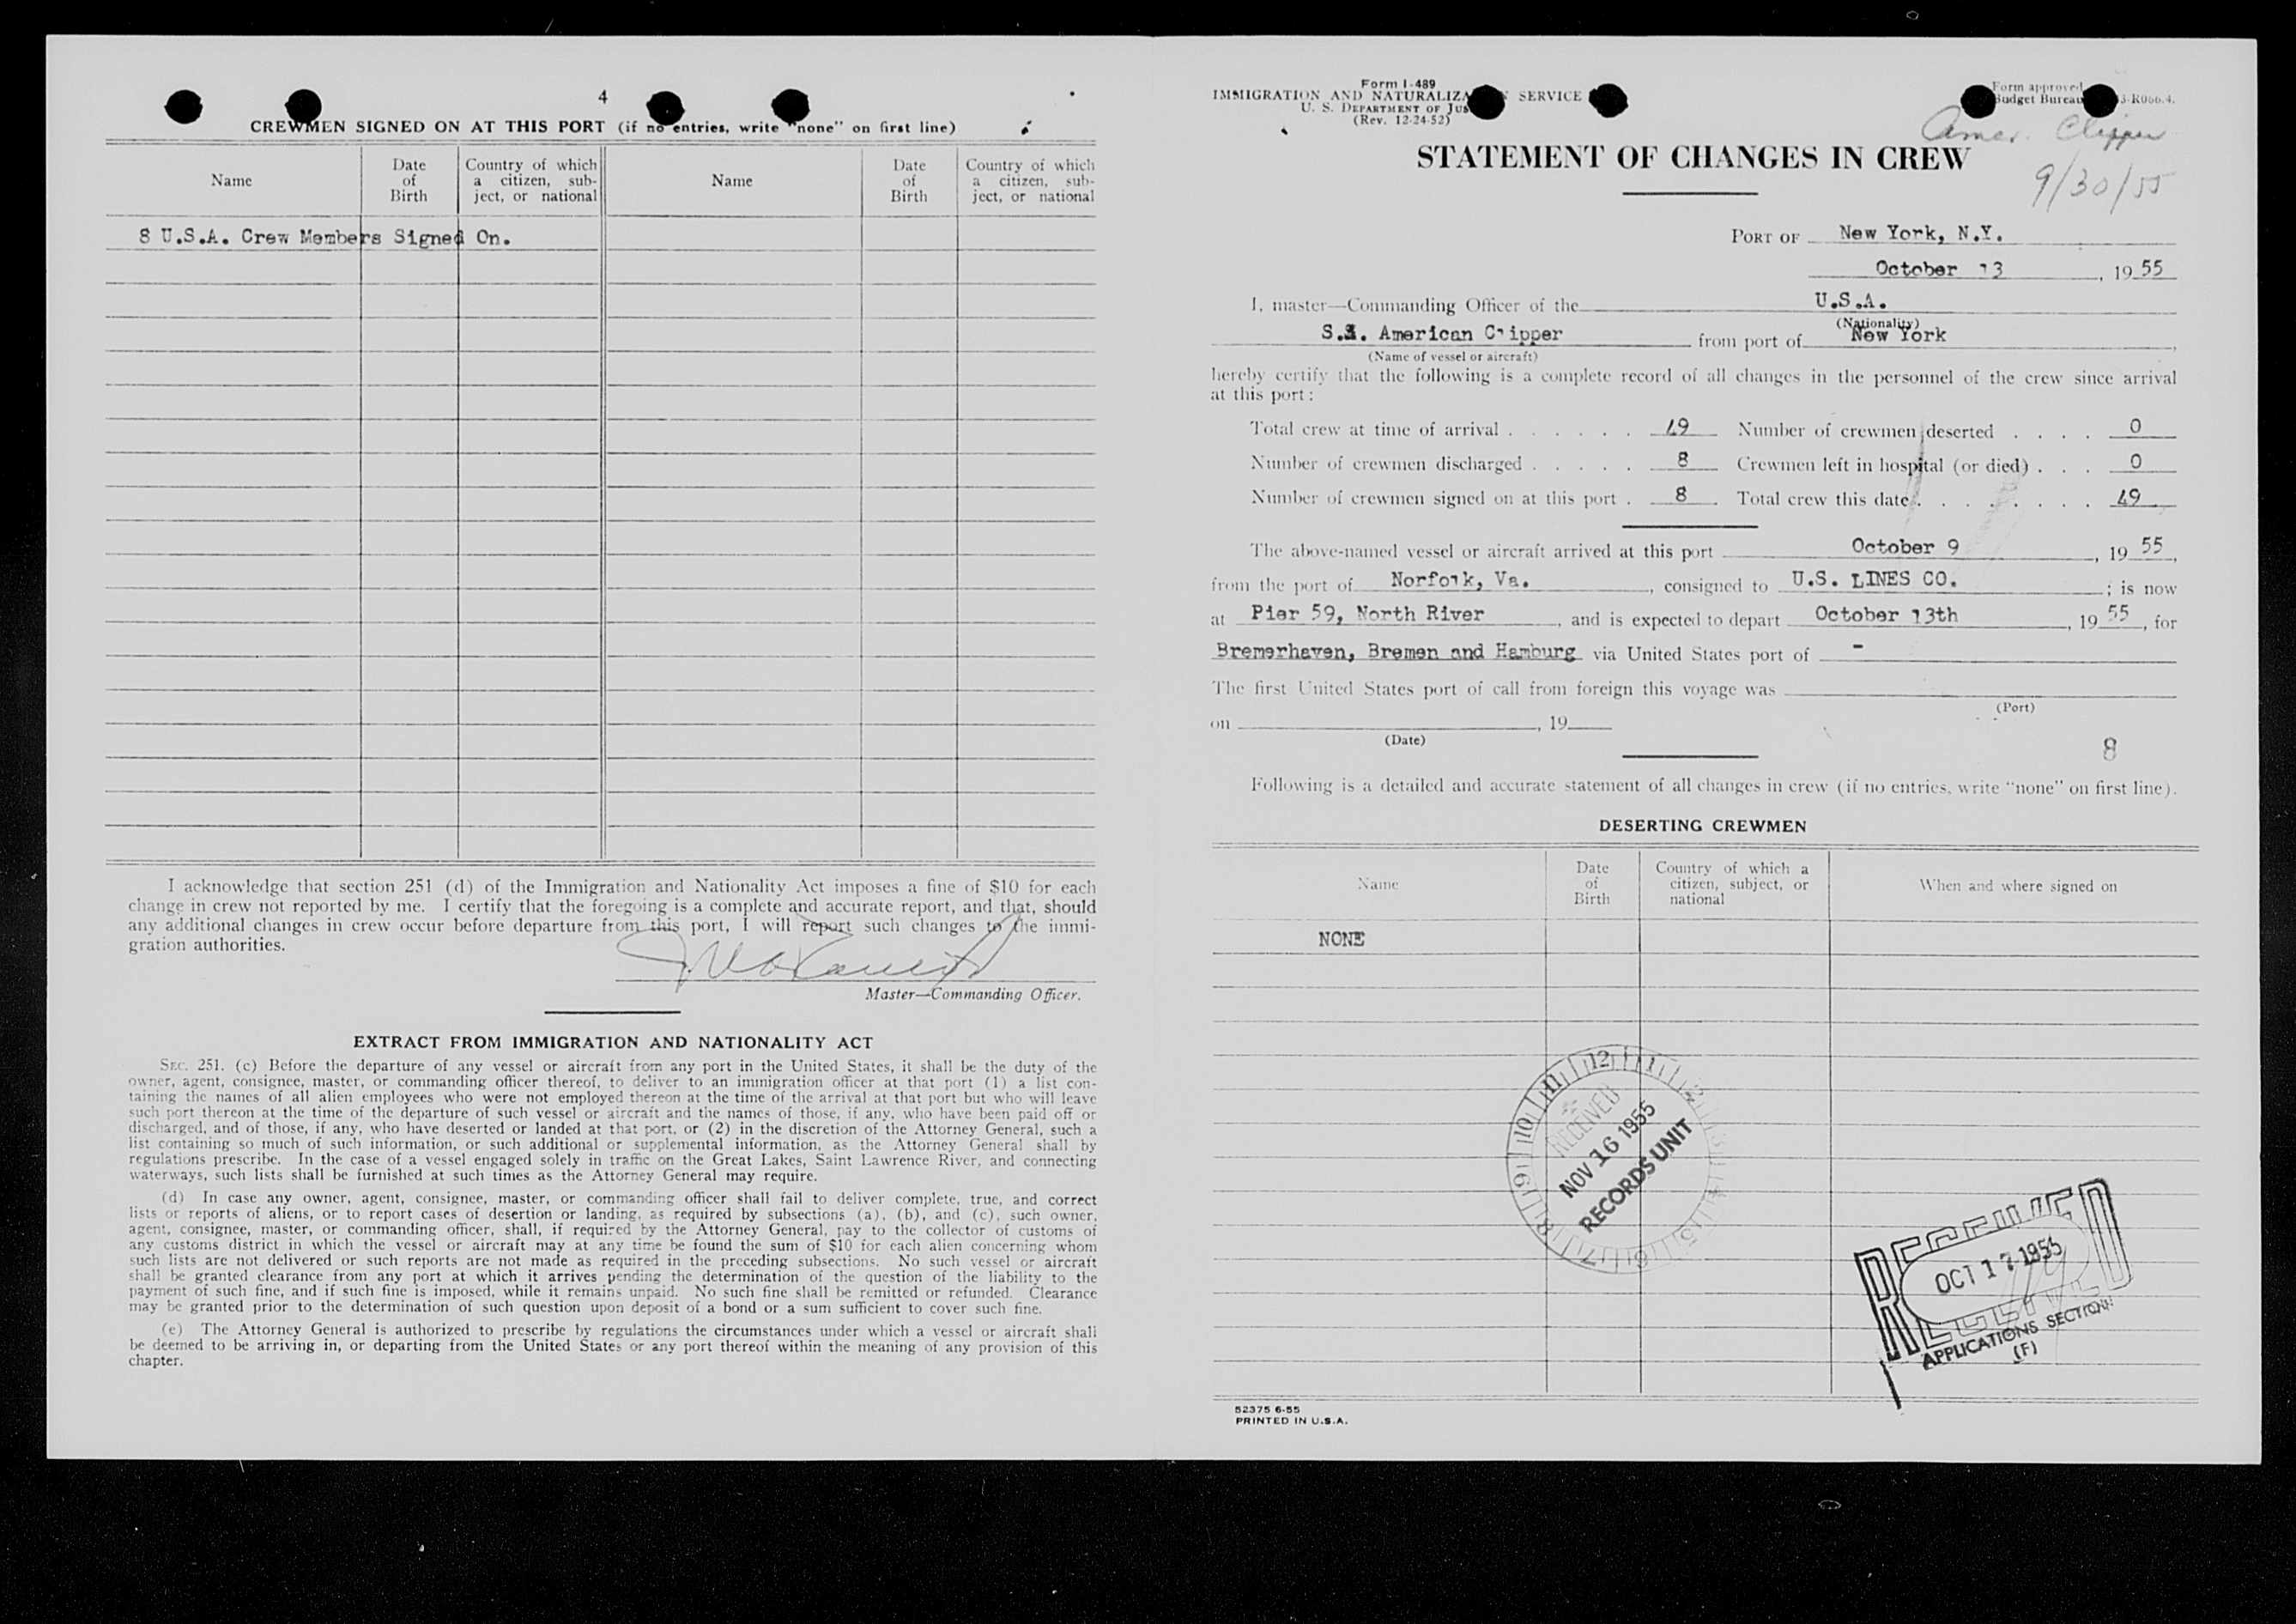 4
CREWMEN SIGNED ON AT THIS PORT (if no entries, write "none" on first line)
Name
Date of Birth
Country of which a citizen, subject, or national
Name
Date of Birth
Country of which a citizen, subject, or national
8 U.S.A. Crew Members Signed On.
I acknowledge that section 251 (d) of the Immigration and Nationality Act imposes a fine of $10 for each
change in crew not reported by me. I certify that the foregoing is a complete and accurate report, and that, should
any additional changes in crew occur before departure from this port, I will report such changes to the immi-
gration authorities.
Master—Commanding Officer.
EXTRACT FROM IMMIGRATION AND NATIONALITY ACT
SEC. 251. (c) Before the departure of any vessel or aircraft from any port in the United States, it shall be the duty of the
owner, agent, consignee, master, or commanding officer thereof, to deliver to an immigration officer at that port (1) a list con-
taining the names of all alien employees who were not employed thereon at the time of the arrival at that port but who will leave
such port thereon at the time of the departure of such vessel or aircraft and the names of those, if any, who have been paid off or
discharged, and of those, if any, who have deserted or landed at that port, or (2) in the discretion of the Attorney General, such a
list containing so much of such information, or such additional or supplemental information, as the Attorney General shall by
regulations prescribe. In the case of a vessel engaged solely in traffic on the Great Lakes, Saint Lawrence River, and connecting
waterways, such lists shall be furnished at such times as the Attorney General may require.
(d) In case any owner, agent, consignee, master, or commanding officer shall fail to deliver complete, true, and correct
lists or reports of aliens, or to report cases of desertion or landing, as required by subsections (a), (b), and (c), such owner,
agent, consignee, master, or commanding officer, shall, if required by the Attorney General, pay to the collector of customs of
any customs district in which the vessel or aircraft may at any time be found the sum of $10 for each alien concerning whom
such lists are not delivered or such reports are not made as required in the preceding subsections. No such vessel or aircraft
shall be granted clearance from any port at which it arrives pending the determination of the question of the liability to the
payment of such fine, and if such fine is imposed, while it remains unpaid. No such fine shall be remitted or refunded. Clearance
may be granted prior to the determination of such question upon deposit of a bond or a sum sufficient to cover such fine.
(e) The Attorney General is authorized to prescribe by regulations the circumstances under which a vessel or aircraft shall
be deemed to be arriving in, or departing from the United States or any port thereof within the meaning of any provision of this
chapter.
Form I-489
IMMIGRATION AND NATURALIZA SERVICE
U. S. DEPARTMENT OF JUS
(Rev. 12-24-52)
Form approved
Budget Bureau 3-R066.4.
Amer. Clipper
9/30/55
STATEMENT OF CHANGES IN CREW
PORT OF New York, N.Y.
October 13, 1955
I, master—Commanding Officer of the U.S.A.
(Nationality)
S.S. American Clipper from port of New York,
(Name of vessel or aircraft)
hereby certify that the following is a complete record of all changes in the personnel of the crew since arrival
at this port:
Total crew at time of arrival . . . . . . 49 Number of crewmen deserted . . . . 0
Number of crewmen discharged . . . . . 8 Crewmen left in hospital (or died) . . . 0
Number of crewmen signed on at this port . 8 Total crew this date . . . . . . . . 49
The above-named vessel or aircraft arrived at this port October 9, 1955,
from the port of Norfolk, Va., consigned to U.S. LINES CO.; is now
at Pier 59, North River, and is expected to depart October 13th, 1955, for
Bremerhaven, Bremen and Hamburg via United States port of -
The first United States port of call from foreign this voyage was
(Port)
on , 19
(Date)
8
Following is a detailed and accurate statement of all changes in crew (if no entries, write "none" on first line).
DESERTING CREWMEN
Name
Date of Birth
Country of which a citizen, subject, or national
When and where signed on
NONE
12 1 2 3 4 5 6 7 8 9 10 11
RECEIVED
NOV 16 1955
RECORDS UNIT
RECEIVED
OCT 17 1955
RECEIVED
APPLICATIONS SECTION
(F)
52375 6-55
PRINTED IN U.S.A.